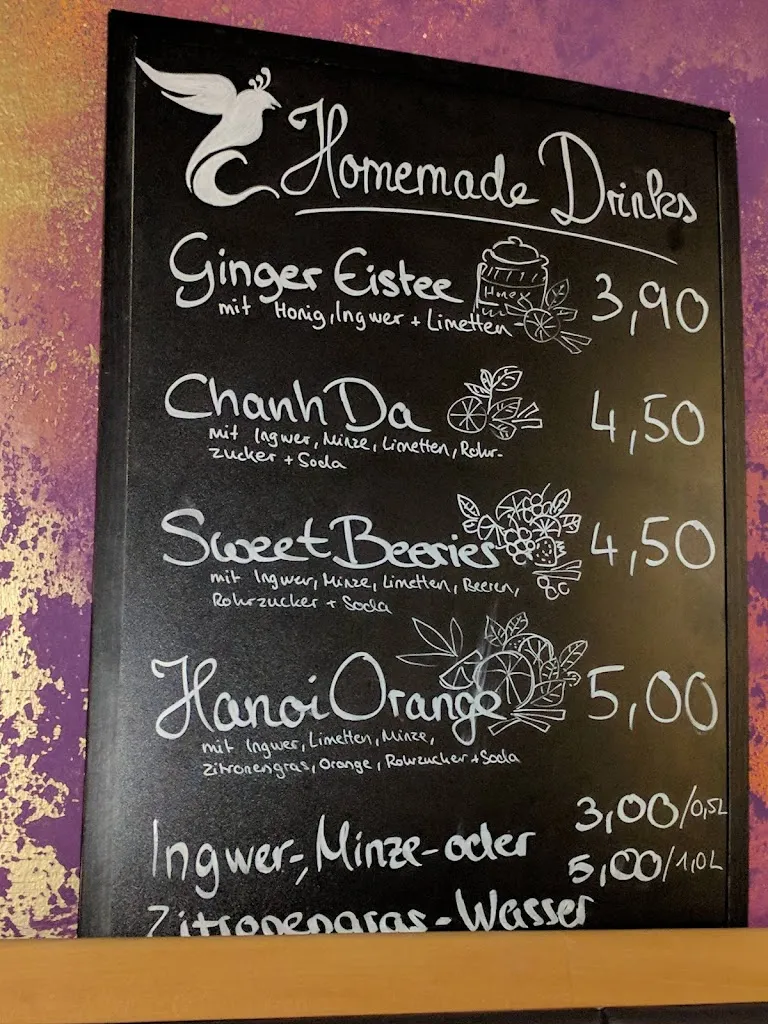 Homemade Drinks
Ginger Eistee 3,90
Honey
mit Honig, Ingwer + Limetten
Chanh Da 4,50
mit Ingwer, Minze, Limetten, Rohr-
zucker + Soda
Sweet Beeries 4,50
mit Ingwer, Minze, Limetten, Beeren,
Rohrzucker + Soda
Hanoi Orange 5,00
mit Ingwer, Limetten, Minze,
Zitronengras, Orange, Rohrzucker + Soda
3,00/0,5L
Ingwer-, Minze- oder
5,00/1,0L
Zitronengras-Wasser